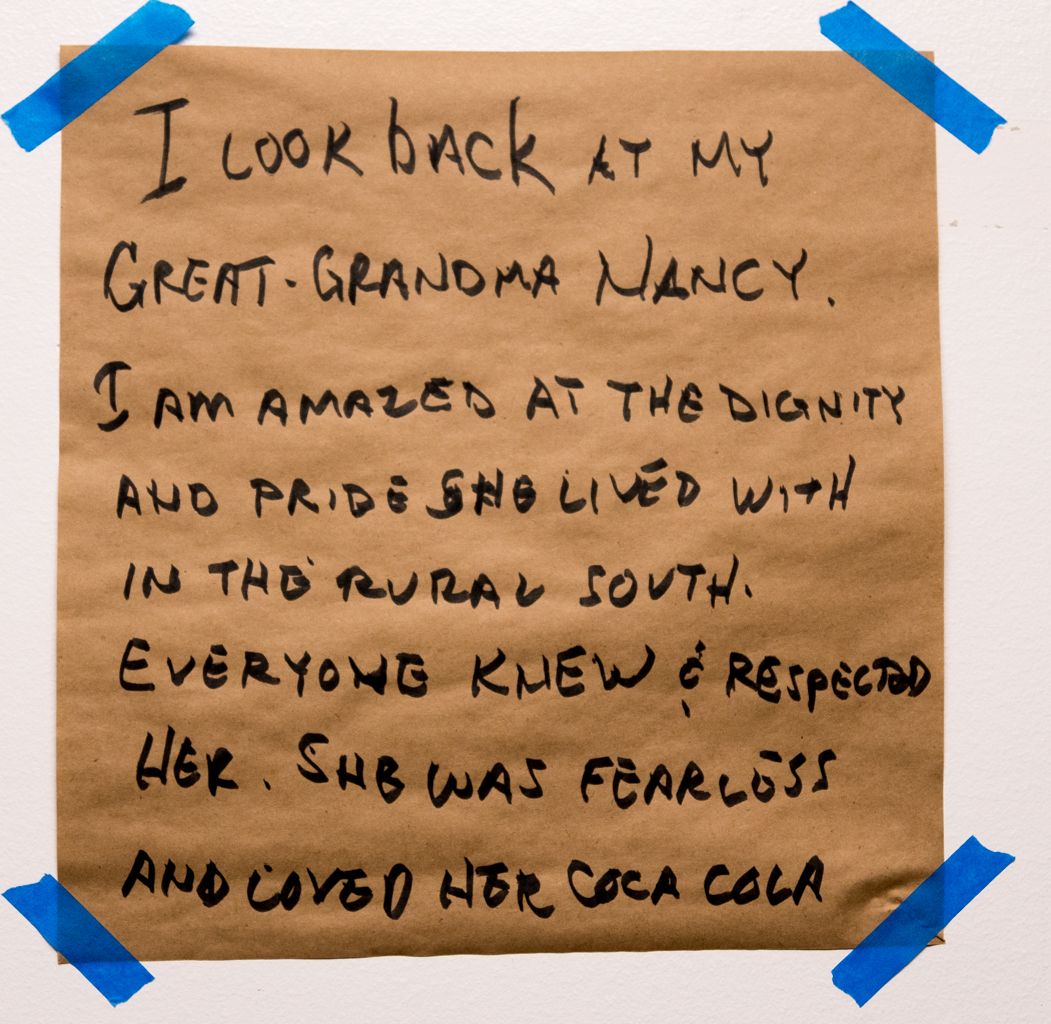 I LOOK bACK AT MY
GREAT-GRANDMA NANCY.
I AM AMAZED AT THE DIGNITY
AND PRIDE SHE LIVED WITH
IN THE RURAL SOUTH.
EVERYONE KNEW & RESPECTED
HER. SHE WAS FEARLESS
AND LOVED HER COCA COLA